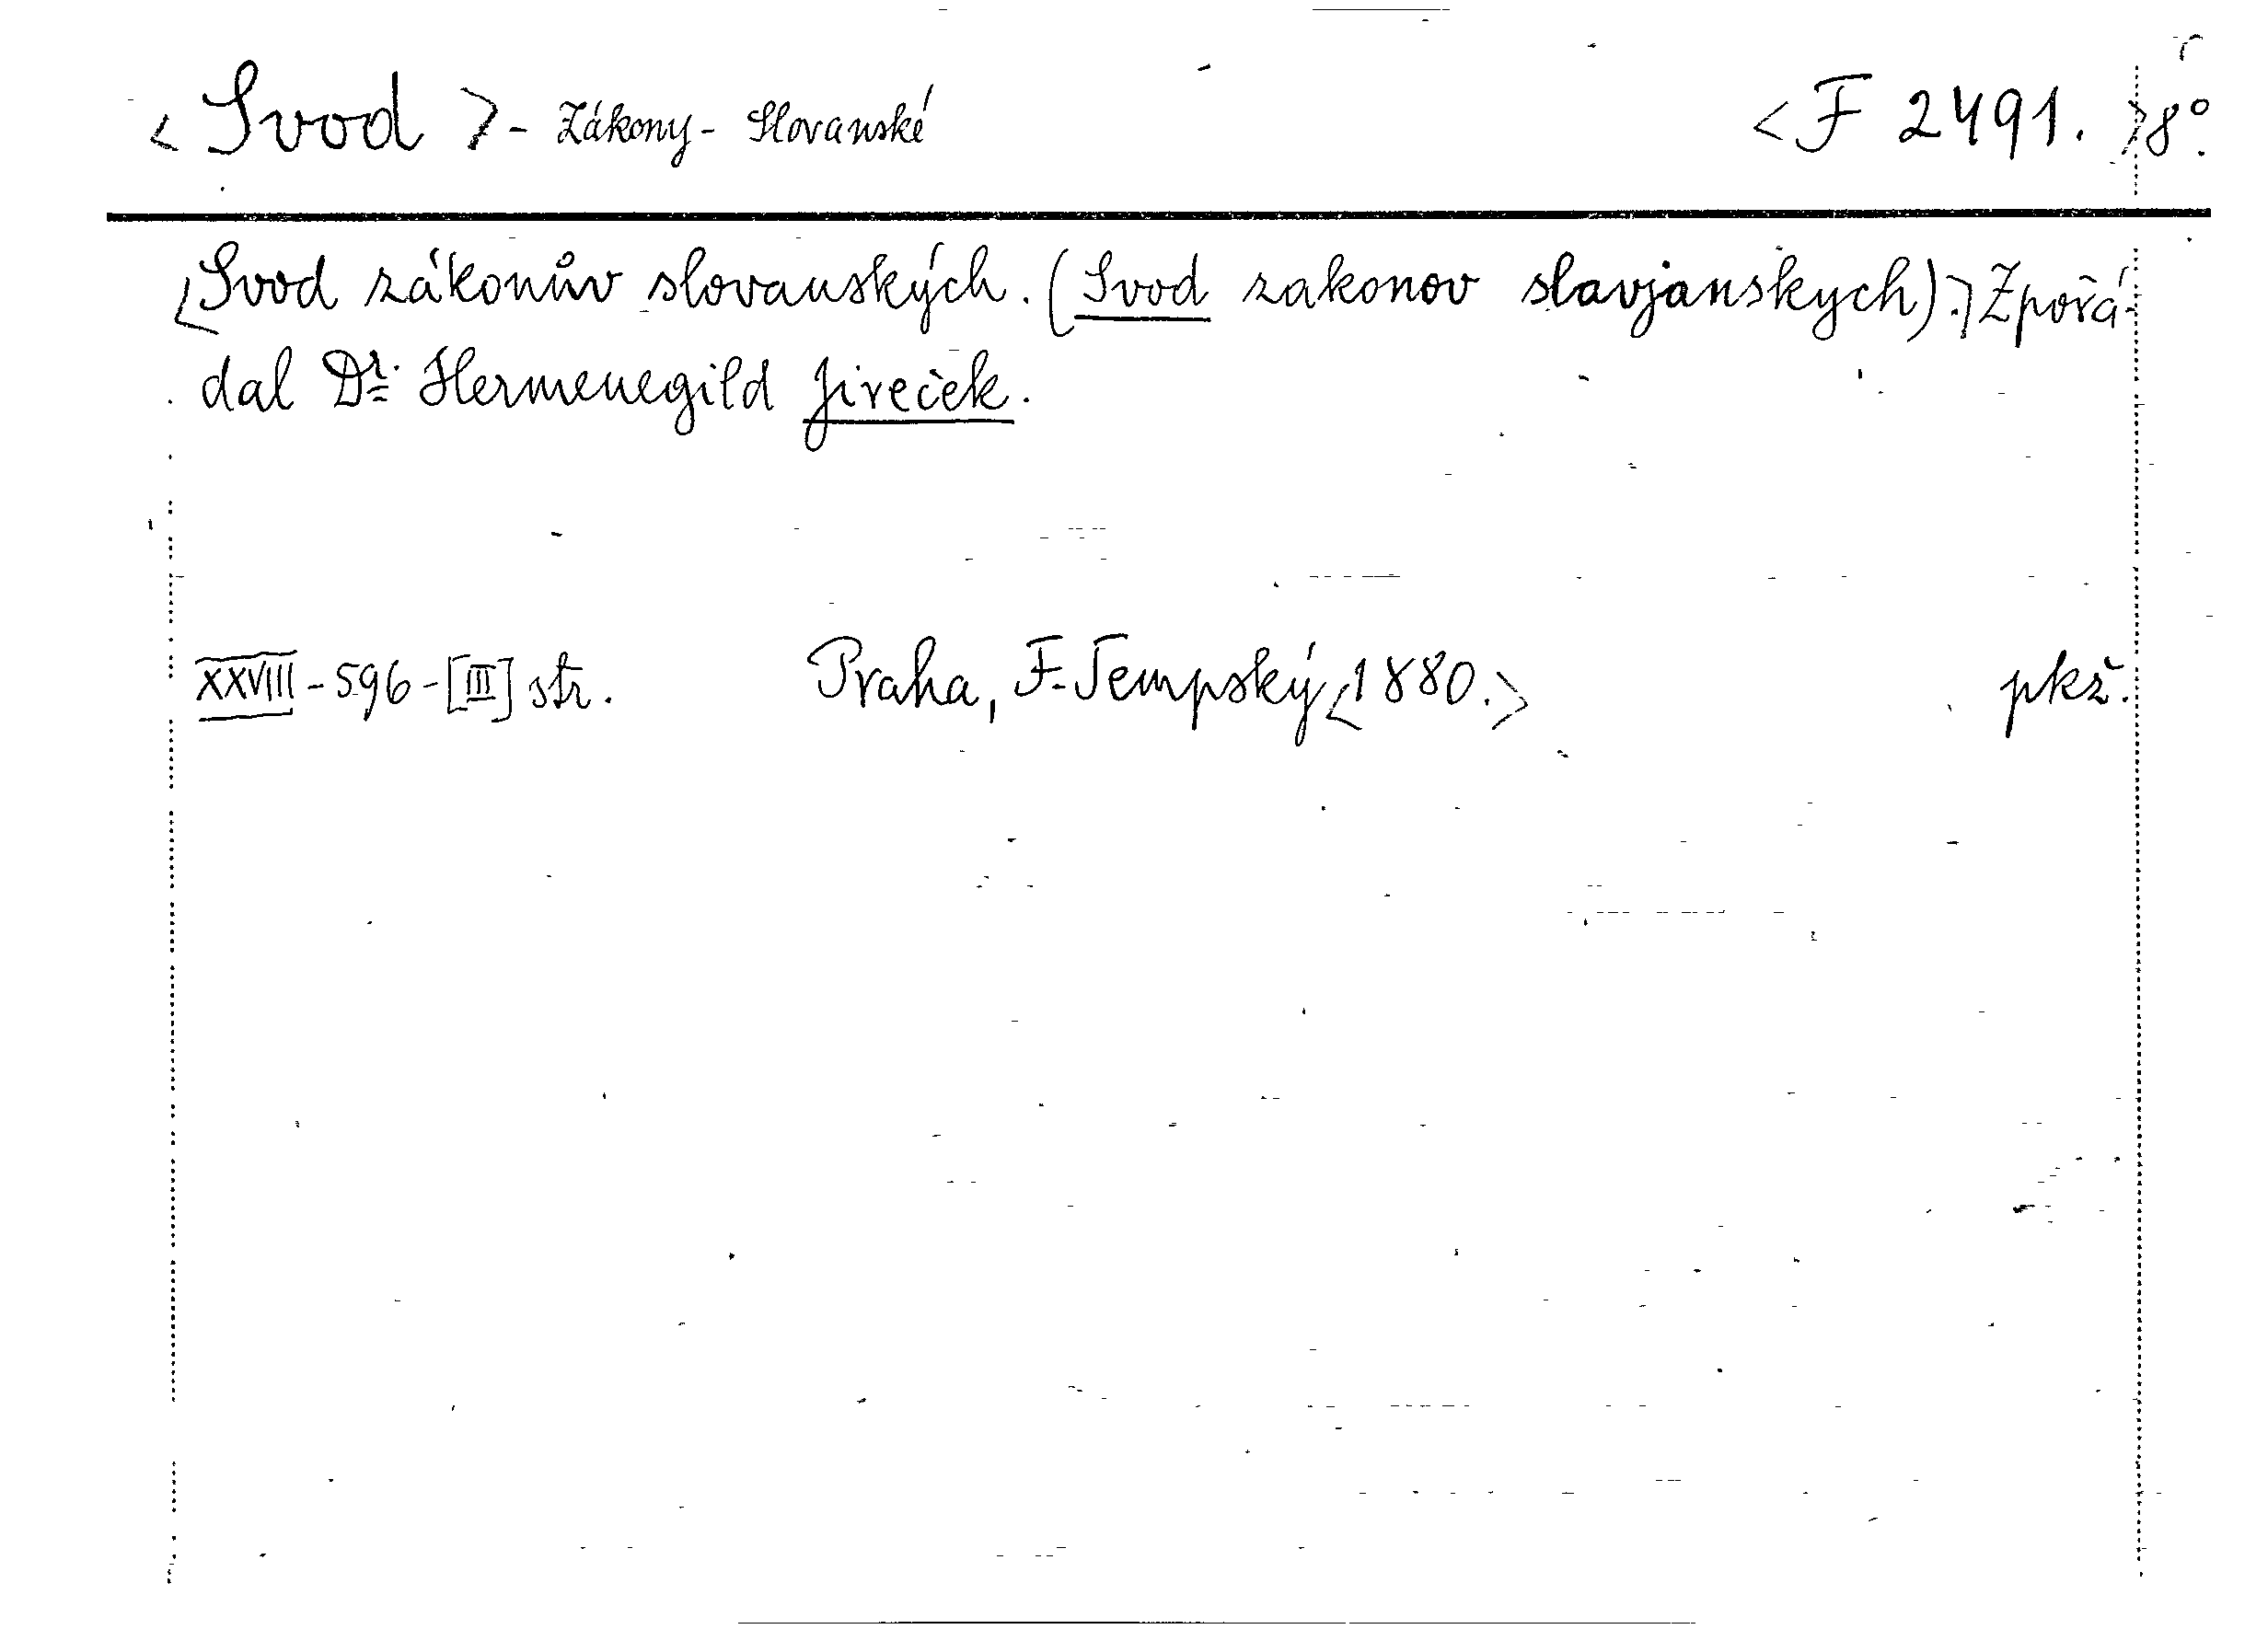 <Svod>- Zákony- Slovanské <F 2491.>8°.
<Svod zákonův slovanských. (Svod zakonov slavjanskych).> Zpořá-
dal Dr. Hermenegild Jireček.
XXVIII-596-[III] str. Praha, F. Tempský <1880.> pkž.